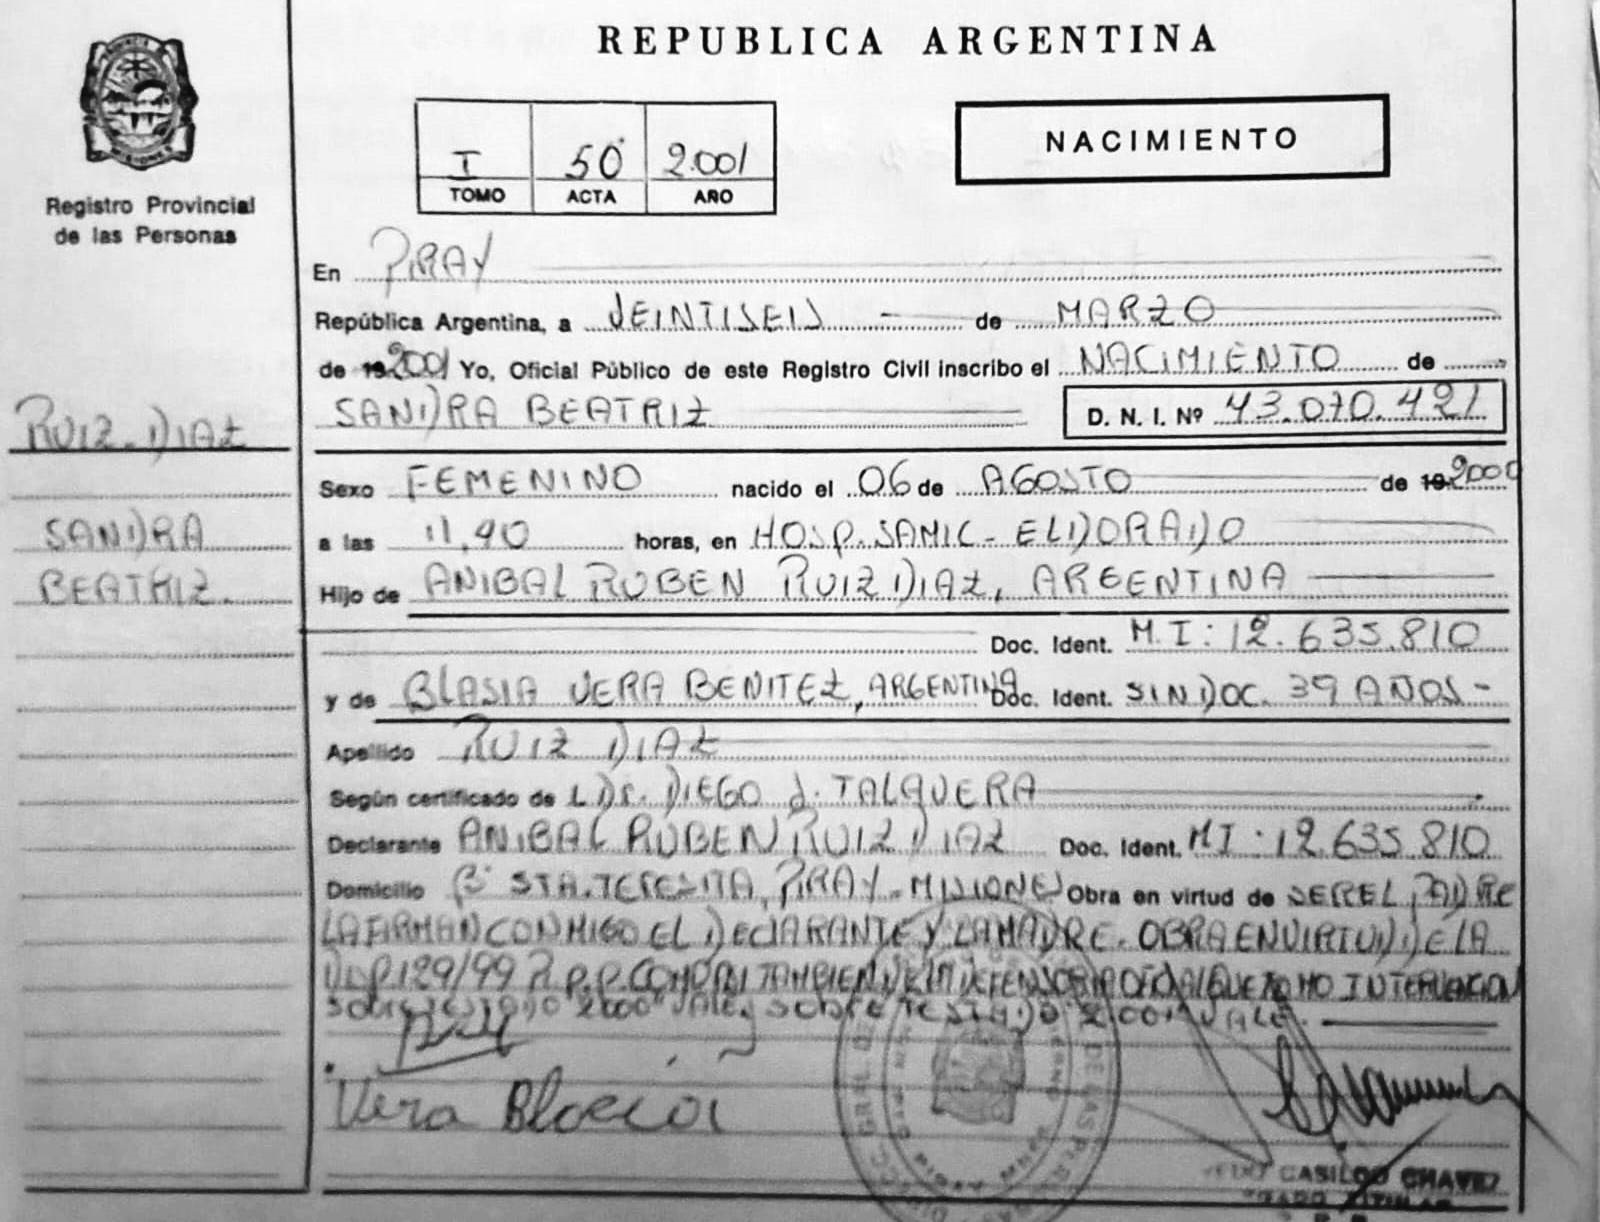 REPUBLICA ARGENTINA
I 50 2.001
TOMO ACTA AÑO
NACIMIENTO
Registro Provincial
de las Personas
RUIZ DIAZ
SANDRA
BEATRIZ.
En PIRAY
República Argentina, a VEINTISEIS de MARZO
de 19 2001 Yo, Oficial Público de este Registro Civil inscribo el NACIMIENTO de
SANDRA BEATRIZ D. N. I. Nº 43.070.421
Sexo FEMENINO nacido el 06 de AGOSTO de 19 2000
a las 11,40 horas, en HOSP. SAMIC - ELDORADO
Hijo de ANIBAL RUBEN RUIZ DIAZ, ARGENTINA
Doc. Ident. M.I: 12.635.810
y de BLASIA VERA BENITEZ, ARGENTINA Doc. Ident. SIN DOC. 39 AÑOS -
Apellido RUIZ DIAZ
Según certificado de DIEGO J. TALAVERA
Declarante ANIBAL RUBEN RUIZ DIAZ Doc. Ident. MI: 12.635.810
Domicilio Bº STA. TERESITA, PIRAY - MISIONES Obra en virtud de SER EL PADRE
LA FIRMAN CONMIGO EL DECLARANTE Y LA MADRE. OBRA EN VIRTUD DE LA
129/99 R.P.P. TAMBIEN
SOBRE TESTADO "2000" VALE Y SOBRE TESTADO 2001 VALE.
Vera Blasia
CASILDO CHAVEZ